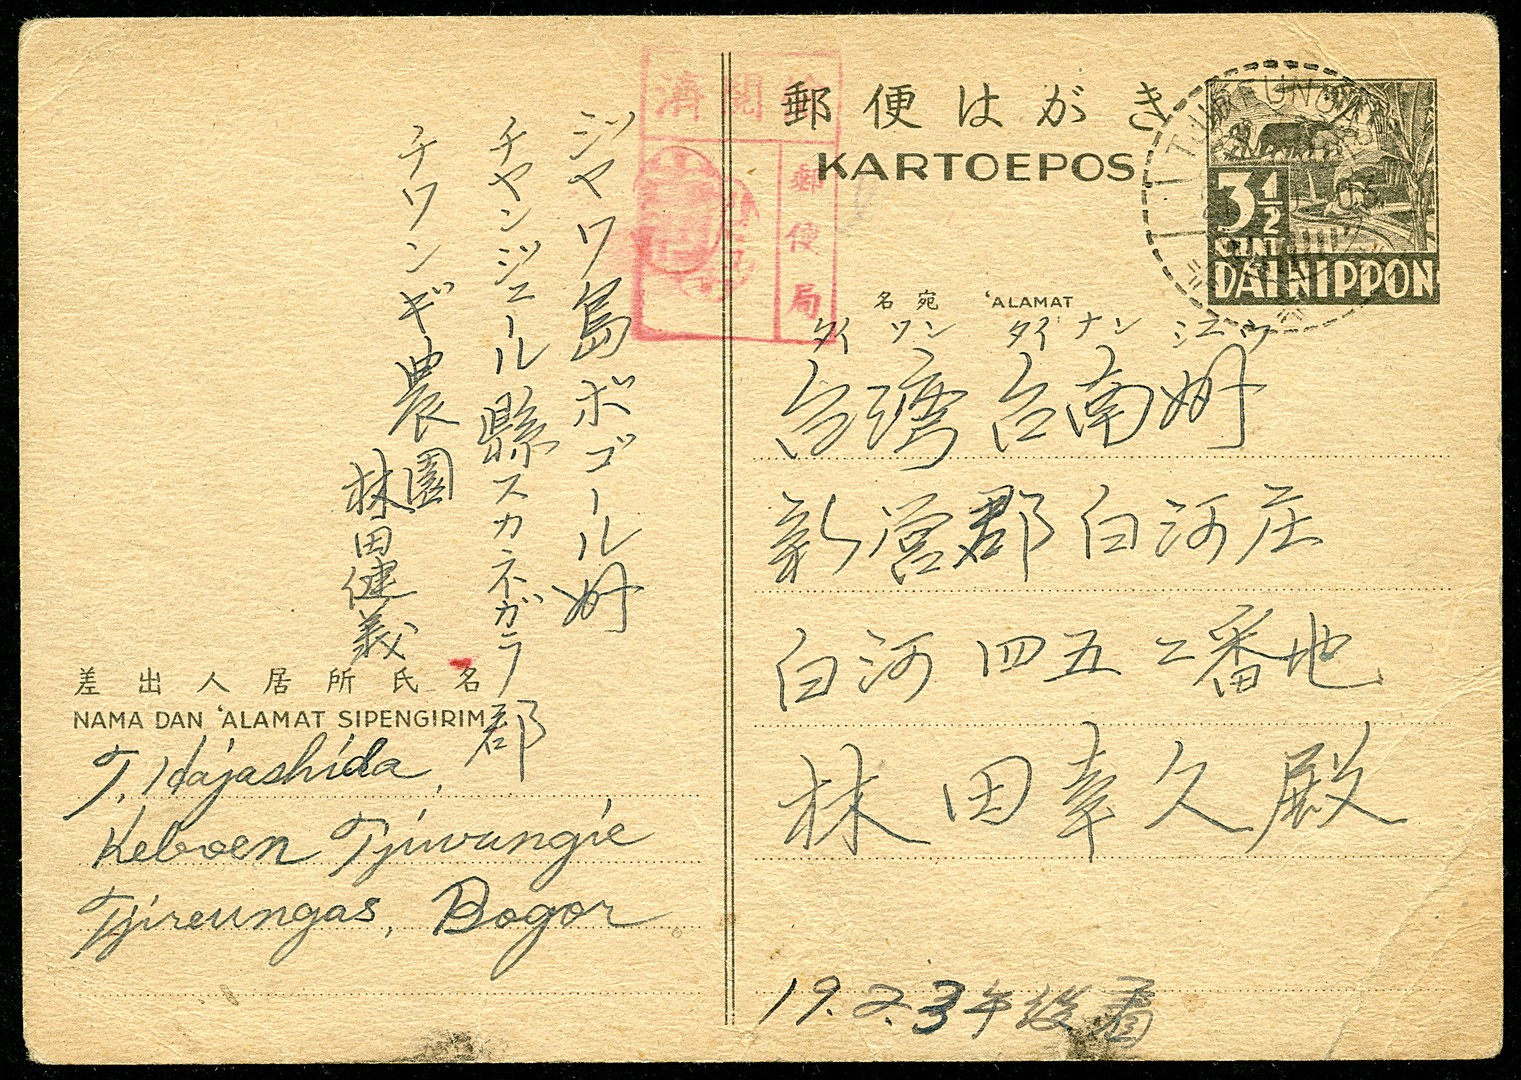 郵便はがき
KARTOEPOS
3½
CENT
DAI NIPPON
検閲済
郵便局
名宛 'ALAMAT
タイワン タイナン シユウ
台湾台南州
新営郡白河庄
白河四五二番地
林田幸久殿
19.2.3午後着
ジヤワ島ボゴール州
チヤンジユール縣スカネガラ郡
チワンギ農園
林田健義
差出人居所氏名
NAMA DAN 'ALAMAT SIPENGIRIM
T. Hajashida,
Keboen Tjiwangie
Tjireungas, Bogor